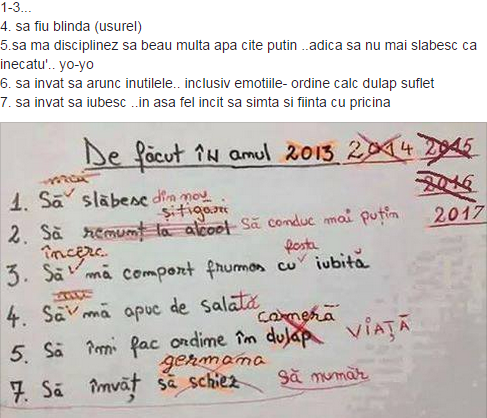 1-3...
4. sa fiu blinda (usurel)
5.sa ma disciplinez sa beau multa apa cite putin ..adica sa nu mai slabesc ca
inecatu'.. yo-yo
6. sa invat sa arunc inutilele.. inclusiv emotiile- ordine calc dulap suflet
7. sa invat sa iubesc ..in asa fel incit sa simta si fiinta cu pricina
De făcut în anul 2013 2014 2015
2016
2017
mai
1. Să slăbesc din nou
și țigări
2. Să renunț la alcool Să conduc mai puțin
încerc fosta
3. Să mă comport frumos cu iubită
mai
4. Să mă apuc de salată
cameră
5. Să îmi fac ordine în dulap VIAȚĂ
germana
7. Să învăț să schiez să număr